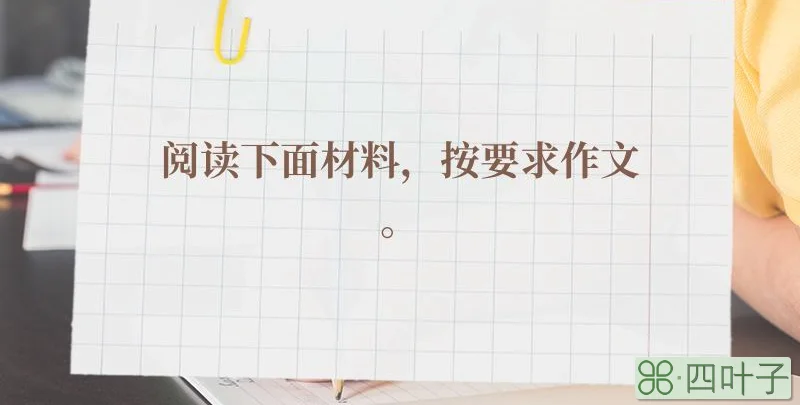 阅读下面材料，按要求作文
。
四叶子